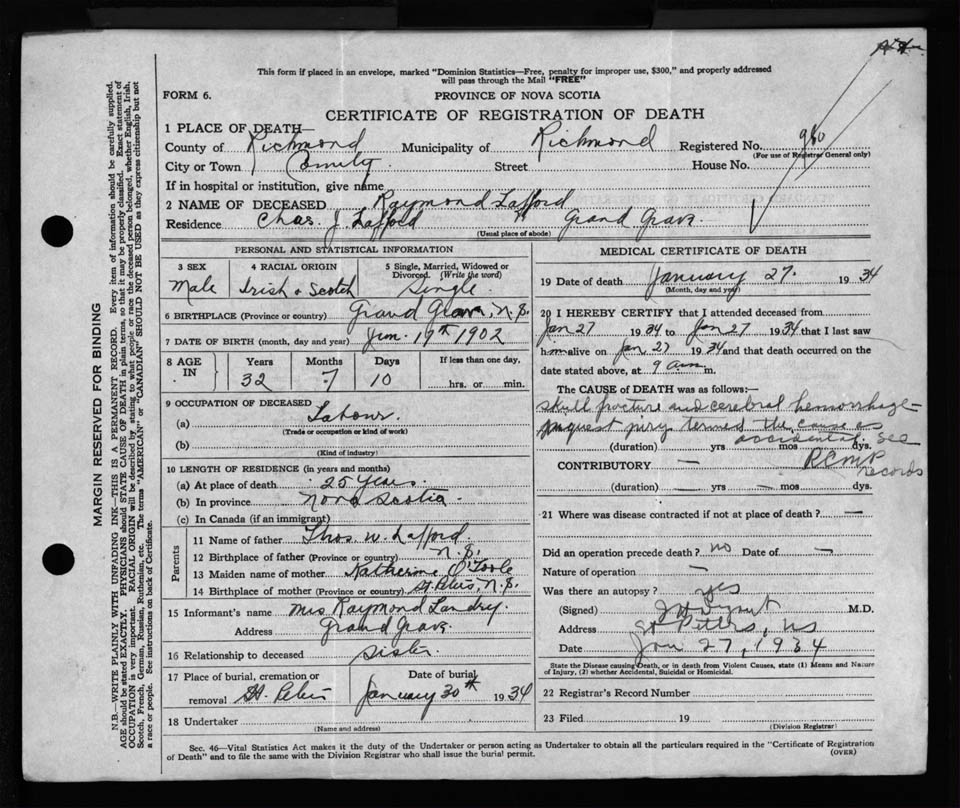 This form if placed in an envelope, marked "Dominion Statistics—Free, penalty for improper use, $300," and properly addressed
will pass through the Mail "FREE"
FORM 6.
PROVINCE OF NOVA SCOTIA
CERTIFICATE OF REGISTRATION OF DEATH
1 PLACE OF DEATH—
County of Richmond Municipality of Richmond Registered No. 960
(For use of Registrar General only)
City or Town Street House No.
If in hospital or institution, give name
2 NAME OF DECEASED Raymond Lafford
Residence Chas. J. Lafford Grand Grave
(Usual place of abode)
PERSONAL AND STATISTICAL INFORMATION
3 SEX 4 RACIAL ORIGIN 5 Single, Married, Widowed or
Divorced. (Write the word)
Male Irish & Scotch Single
6 BIRTHPLACE (Province or country) Grand Grave, N.S.
7 DATE OF BIRTH (month, day and year) 19th 1902
8 AGE IN Years Months Days If less than one day,
32 7 10 hrs. or min.
9 OCCUPATION OF DECEASED
(a) Labour
(Trade or occupation or kind of work)
(b)
(Kind of industry)
10 LENGTH OF RESIDENCE (in years and months)
(a) At place of death 25 Years
(b) In province Nova Scotia
(c) In Canada (if an immigrant)
Parents
11 Name of father Thos. W. Lafford
12 Birthplace of father (Province or country) N.S.
13 Maiden name of mother Katherine O'Toole
14 Birthplace of mother (Province or country) St. Peters, N.S.
15 Informant's name Mrs Raymond Landry
Address Grand Grave
16 Relationship to deceased Sister
17 Place of burial, cremation or Date of burial
removal St. Peters January 30th 1934
18 Undertaker
(Name and address)
MEDICAL CERTIFICATE OF DEATH
19 Date of death January 27 1934
(Month, day and year)
20 I HEREBY CERTIFY that I attended deceased from
Jan 27 1934 to Jan 27 1934 that I last saw
him alive on Jan 27 1934 and that death occurred on the
date stated above, at 9 am m.
The CAUSE of DEATH was as follows:—
skull fracture and cerebral hemorrhage
inquest jury termed the cause as
accidental. See
(duration) yrs mos dys.
RCMP records
CONTRIBUTORY —
(duration) — yrs — mos dys.
21 Where was disease contracted if not at place of death? —
Did an operation precede death? no Date of —
Nature of operation —
Was there an autopsy? yes
(Signed) M.D.
Address St Peters, NS
Date Jan 27, 1934
State the Disease causing Death, or in death from Violent Causes, state (1) Means and Nature
of Injury, (2) whether Accidental, Suicidal or Homicidal.
22 Registrar's Record Number
23 Filed 19
(Division Registrar)
Sec. 46—Vital Statistics Act makes it the duty of the Undertaker or person acting as Undertaker to obtain all the particulars required in the "Certificate of Registration
of Death" and to file the same with the Division Registrar who shall issue the burial permit. (OVER)
MARGIN RESERVED FOR BINDING
N.B.—WRITE PLAINLY WITH UNFADING INK—THIS IS A PERMANENT RECORD. Every item of information should be carefully supplied.
AGE should be stated EXACTLY. PHYSICIANS should STATE CAUSE OF DEATH in plain terms, so that it may be properly classified. Exact statement of
OCCUPATION is very important. RACIAL ORIGIN will be described by stating to what people or race the deceased person belonged, whether English, Irish,
Scotch, French, German, Russian, Ruthenian, etc. The terms "AMERICAN" or "CANADIAN" SHOULD NOT BE USED as they express citizenship but not
a race or people. See instructions on back of Certificate.